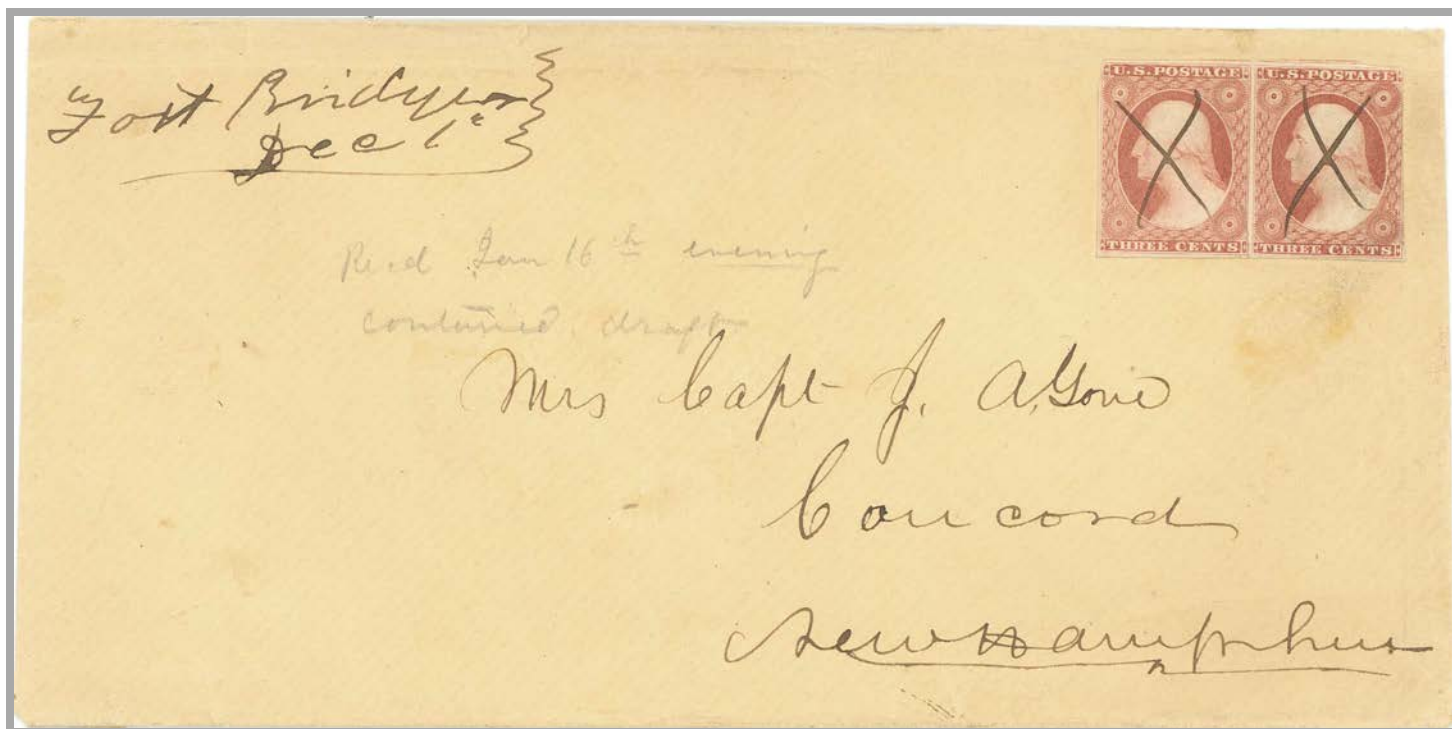 Fort Bridger
Dec 1st
U.S. POSTAGE
THREE CENTS
U.S. POSTAGE
THREE CENTS
Rec.d Jan 16th evening
contained draft
Mrs Capt J. A. Gove
Concord
New Hampshire